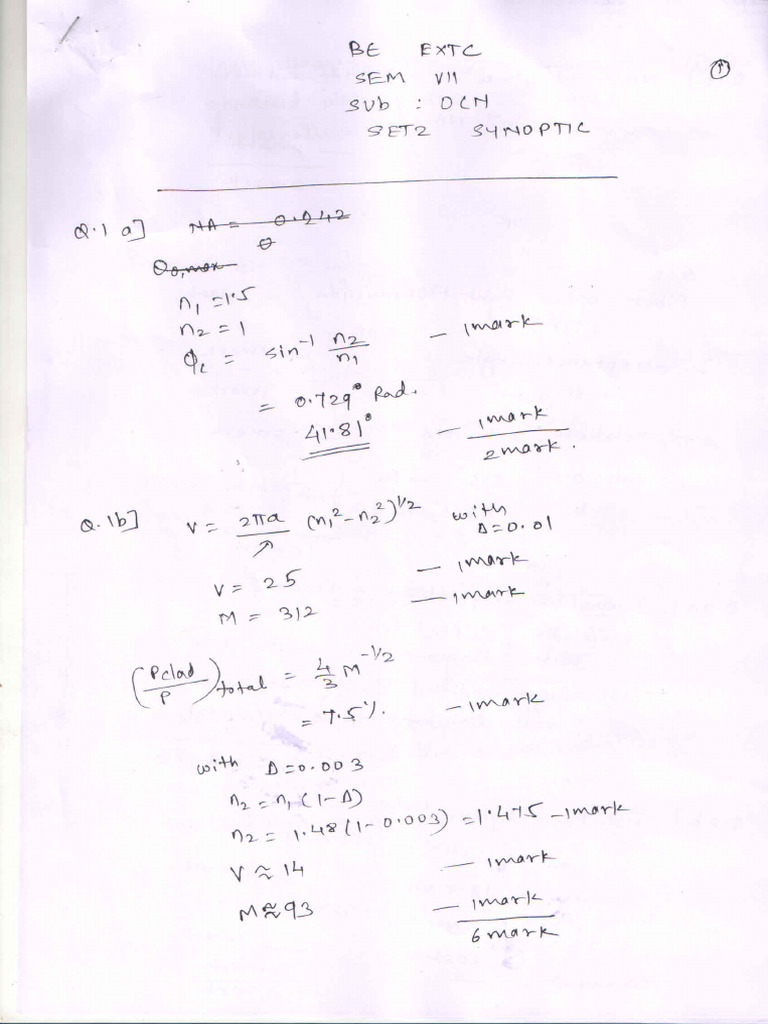 BE EXTC
SEM VII
①
SUB : OCN
SET2 SYNOPTIC
Q.1 a] NA = 0.242
θ
θo,max
n₁ = 1.5
n₂ = 1
ϕc = sin⁻¹ n₂/n₁ — 1mark
= 0.729° Rad.
41.81° — 1mark
2mark.
Q.1b] V = 2πa/λ (n₁² - n₂²)^1/2 with Δ=0.01
V = 25 — 1mark
M = 312 — 1mark
(Pclad/P)total = 4/3 M^-1/2
= 7.5%. — 1mark
with Δ=0.003
n₂ = n₁ (1-Δ)
n₂ = 1.48 (1-0.003) = 1.475 — 1mark
V ≈ 14 — 1mark
M ≈ 93 — 1mark
6mark